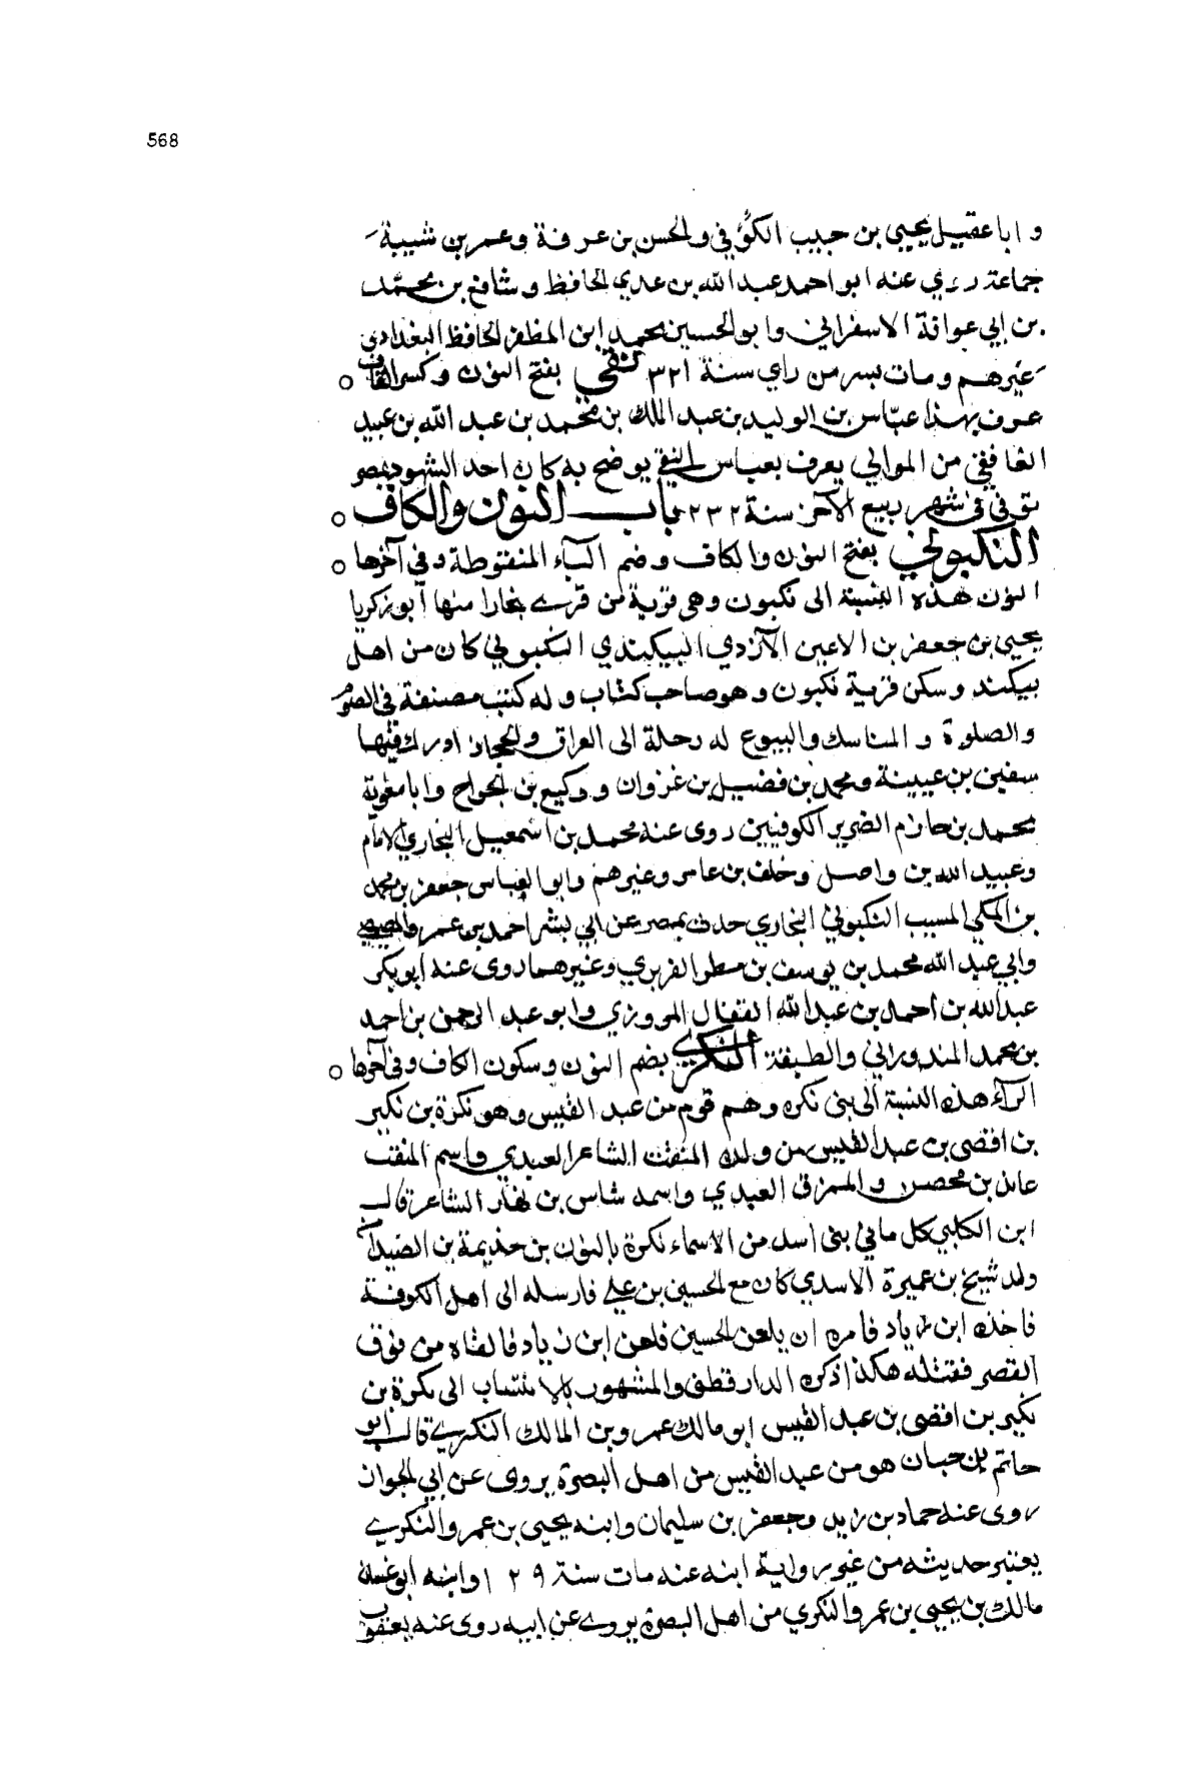 568
و ابا عقيل يحيى بن حبيب الكوفي والحسن بن عرفة وعمر بن شيبة
جماعة روي عنه ابو احمد عبد الله بن عدي الحافظ و شافع بن محمد
بن ابي عوانة الاسفرايني وابو الحسين محمد ابن المظفر الحافظ البغدادي
غيرهم و مات بسر من راي سنة ٣٢١ النقي بفتح النون وكسر القاف ٥
عرف بهذا عباس بن الوليد بن عبد الملك بن محمد بن عبد الله بن عبيد
الغافقي من الموالي يعرف بعباس النقي يوضح به كان احد الشهود بمصر
توفي في شهر ربيع الآخر سنة ٢٣٢ باب النون والكاف ٥
النكبوني بفتح النون والكاف وضم الباء المنقوطة وفي آخرها ٥
النون هذه النسبة الى نكبون وهي قرية من قرے بخارا منها ابو زكريا
يحيى بن جعفر بن الاعين الازدي البيكندي النكبوني كان من اهل
بيكند و سكن قرية نكبون و هو صاحب كتاب و له كتب مصنفة في الصوم
والصلوة و المناسك والبيوع له رحلة الى العراق والحجاز ادرك فيها
سفين بن عيينة ومحمد بن فضيل بن غزوان و وكيع بن الجراح وابا معوية
محمد بن حازم الضرير الكوفيين روى عنه محمد بن اسمعيل البخاري الامام
وعبيد الله بن واصل وخلف بن عامر وغيرهم وابو العباس جعفر بن محمد
بن المكي المسيب النكبوني البخاري حدث بمصر عن ابي بشر احمد بن عمرو المصيصي
وابي عبد الله محمد بن يوسف بن مطر الفربري وغيرهما روى عنه ابو بكر
عبد الله بن احمد بن عبد الله القفال المروزي وابو عبد الرحمن بن احمد
بن محمد والطبقة النكري بضم النون وسكون الكاف وفي آخرها ٥
الراء هذه النسبة الى بني نكره وهم قوم من عبد القيس وهو نكرة بن نكير
بن افصى بن عبد القيس من ولده المنقب الشاعر العبدي واسم المنقب
عائذ بن محصن والممزق العبدي واسمه شاس بن نهار الشاعر قال
ابن الكلبي كل ما في بني اسد من الاسماء نكرة بالنون بن حذيمة بن الصيدا
ولد شيخ بن عميرة الاسدي كان مع الحسين بن علي فارسله الى اهل الكوفة
فاخذه ابن زياد فامره ان يلعن الحسين فلعن ابن زياد فالقاه من فوق
القصر فقتله هكذا ذكره الدارقطني والمشهور بالانتساب الى نكرة بن
نكير بن افصى بن عبد القيس ابو مالك عمرو بن المالك النكرے قال ابو
حاتم بن حبان هو من عبد القيس من اهل البصرة يروى عن ابي الجوزا
روى عنه حماد بن زيد وجعفر بن سليمان وابنه يحيى بن عمرو النكرے
يعتبر حديثه من غير رواية ابنه عنه مات سنة ١٢٩ وابنه ابو غسان
مالك بن يحيى بن عمرو النكري من اهل البصرة يروے عن ابيه روى عنه يعقوب